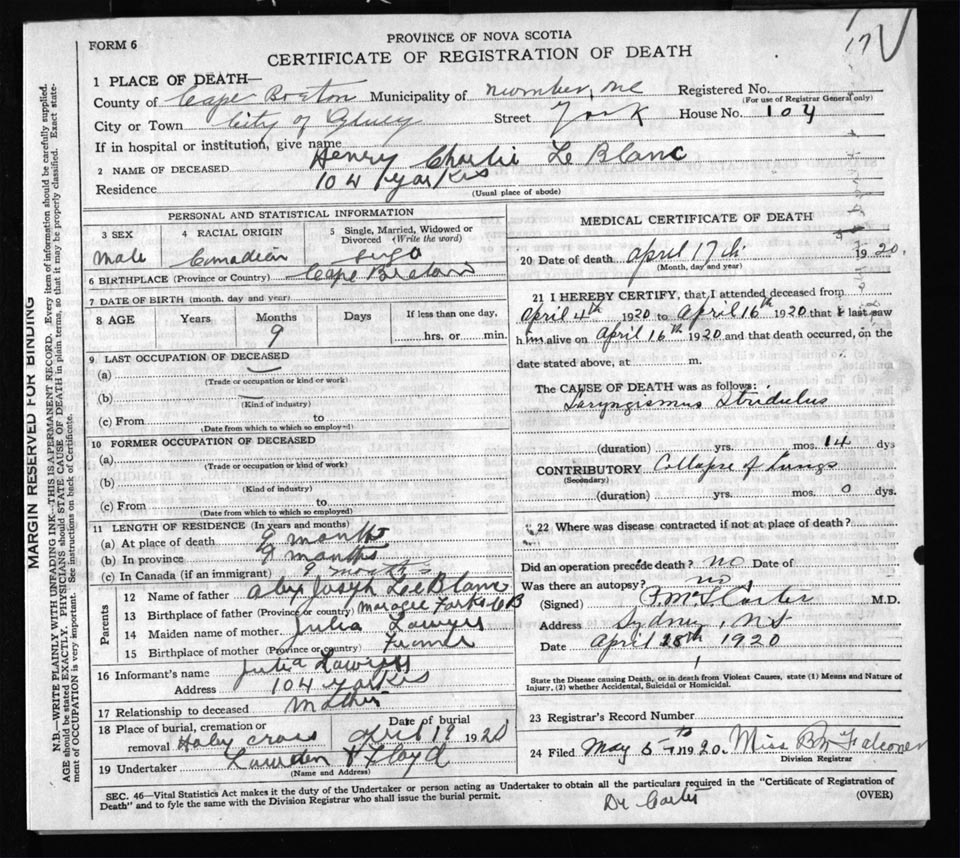 17
PROVINCE OF NOVA SCOTIA
FORM 6
CERTIFICATE OF REGISTRATION OF DEATH
1 PLACE OF DEATH—
County of Cape Breton Municipality of Registered No.
(For use of Registrar General only)
City or Town City of Street York House No. 104
If in hospital or institution, give name
2 NAME OF DECEASED Henry Charlie Le Blanc
Residence 104 York
(Usual place of abode)
PERSONAL AND STATISTICAL INFORMATION
3 SEX 4 RACIAL ORIGIN 5 Single, Married, Widowed or Divorced (Write the word)
Male Canadian
6 BIRTHPLACE (Province or Country) Cape Breton
7 DATE OF BIRTH (month, day and year)
8 AGE Years Months Days If less than one day,
9 hrs. or min.
9 LAST OCCUPATION OF DECEASED
(a)
(Trade or occupation or kind or work)
(b)
(Kind of industry)
(c) From to
(Date from which to which so employed)
10 FORMER OCCUPATION OF DECEASED
(a)
(Trade or occupation or kind of work)
(b)
(Kind of industry)
(c) From to
(Date from which to which so employed)
11 LENGTH OF RESIDENCE (In years and months)
(a) At place of death 9 months
(b) In province 9 months
(c) In Canada (if an immigrant) 9 months
Parents
12 Name of father Alex Joseph Lee Blanc
13 Birthplace of father (Province or country) Margree Forks CB
14 Maiden name of mother Julia
15 Birthplace of mother (Province or Country)
16 Informant's name Julia
Address 104 York
17 Relationship to deceased Mother
18 Place of burial, cremation or removal Holey Cross Date of burial April 19 1920
19 Undertaker Lowden & Floyd
(Name and Address)
MEDICAL CERTIFICATE OF DEATH
20 Date of death April 17th 1920.
(Month, day and year)
21 I HEREBY CERTIFY, that I attended deceased from
April 4th 1920 to April 16th 1920 that I last saw
him alive on April 16th 1920 and that death occurred, on the
date stated above, at m.
The CAUSE OF DEATH was as follows:
Laryngismus Stridulus
(duration) yrs. mos. 14 dys
CONTRIBUTORY Collapse of Lungs
(Secondary)
(duration) yrs. mos. 0 dys.
22 Where was disease contracted if not at place of death?
Did an operation precede death? no Date of
Was there an autopsy? no
(Signed) Carter M.D.
Address Sydney, NS
Date April 18th 1920
State the Disease causing Death, or in death from Violent Causes, state (1) Means and Nature of
Injury, (2) whether Accidental, Suicidal or Homicidal.
23 Registrar's Record Number
24 Filed May 5th 1920. Miss B M Falconer
Division Registrar
SEC. 46—Vital Statistics Act makes it the duty of the Undertaker or person acting as Undertaker to obtain all the particulars required in the "Certificate of Registration of
Death" and to fyle the same with the Division Registrar who shall issue the burial permit.
(OVER)
Dr Carter
MARGIN RESERVED FOR BINDING
N.B.—WRITE PLAINLY WITH UNFADING INK—THIS IS A PERMANENT RECORD. Every item of information should be carefully supplied.
AGE should be stated EXACTLY. PHYSICIANS should STATE CAUSE OF DEATH in plain terms, so that it may be properly classified. Exact state-
ment of OCCUPATION is very important. See instructions on back of Certificate.